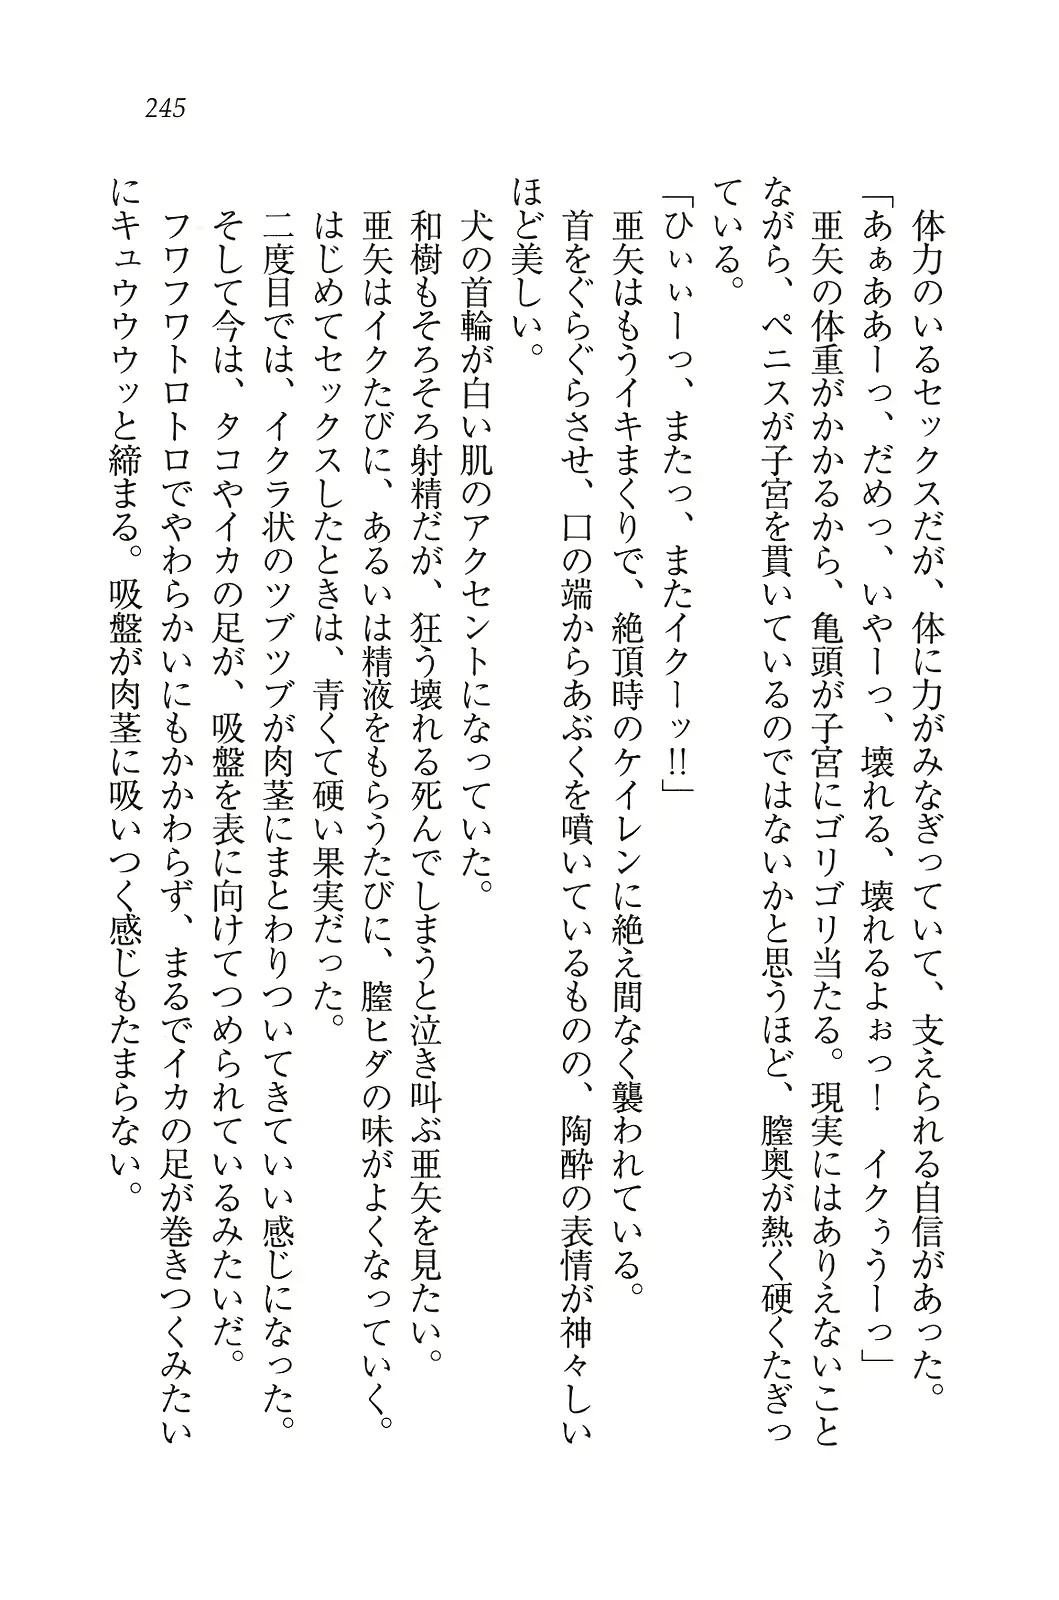 245
体力のいるセックスだが、体に力がみなぎっていて、支えられる自信があった。
「あぁああーっ、だめっ、いやーっ、壊れる、壊れるよぉっ！　イクぅうーっ」
亜矢の体重がかかるから、亀頭が子宮にゴリゴリ当たる。現実にはありえないこと
ながら、ペニスが子宮を貫いているのではないかと思うほど、膣奥が熱く硬くたぎっ
ている。
「ひぃぃーっ、またっ、またイクーッ!!」
亜矢はもうイキまくりで、絶頂時のケイレンに絶え間なく襲われている。
首をぐらぐらさせ、口の端からあぶくを噴いているものの、陶酔の表情が神々しい
ほど美しい。
犬の首輪が白い肌のアクセントになっていた。
和樹もそろそろ射精だが、狂う壊れる死んでしまうと泣き叫ぶ亜矢を見たい。
亜矢はイクたびに、あるいは精液をもらうたびに、膣ヒダの味がよくなっていく。
はじめてセックスしたときは、青くて硬い果実だった。
二度目では、イクラ状のツブツブが肉茎にまとわりついてきていい感じになった。
そして今は、タコやイカの足が、吸盤を表に向けてつめられているみたいだ。
フワフワトロトロでやわらかいにもかかわらず、まるでイカの足が巻きつくみたい
にキュウウウッと締まる。吸盤が肉茎に吸いつく感じもたまらない。